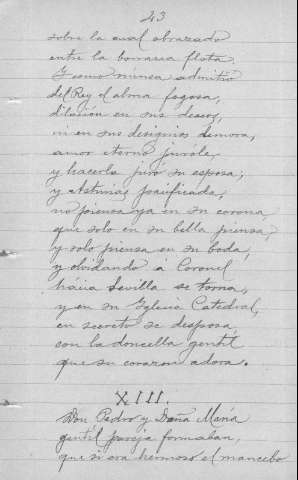 23
sobre la cual abrazado
entre la borrasca flota.
Y como nunca admitió
del Rey el alma fogosa,
dilación en sus deseos,
ni en sus designios demora,
amor eterno juróle,
y hacerla juró su esposa;
y Asturias pacificada,
no piensa ya en su corona,
que solo en su bella piensa,
y solo piensa en su boda,
y olvidando á Coronel
hacia Sevilla se torna,
y en su Iglesia Catedral,
en secreto se desposa
con la doncella gentil
que su corazon adora.
XIII.
Don Pedro y Doña María
gentil pareja formaban,
que si era hermoso el mancebo